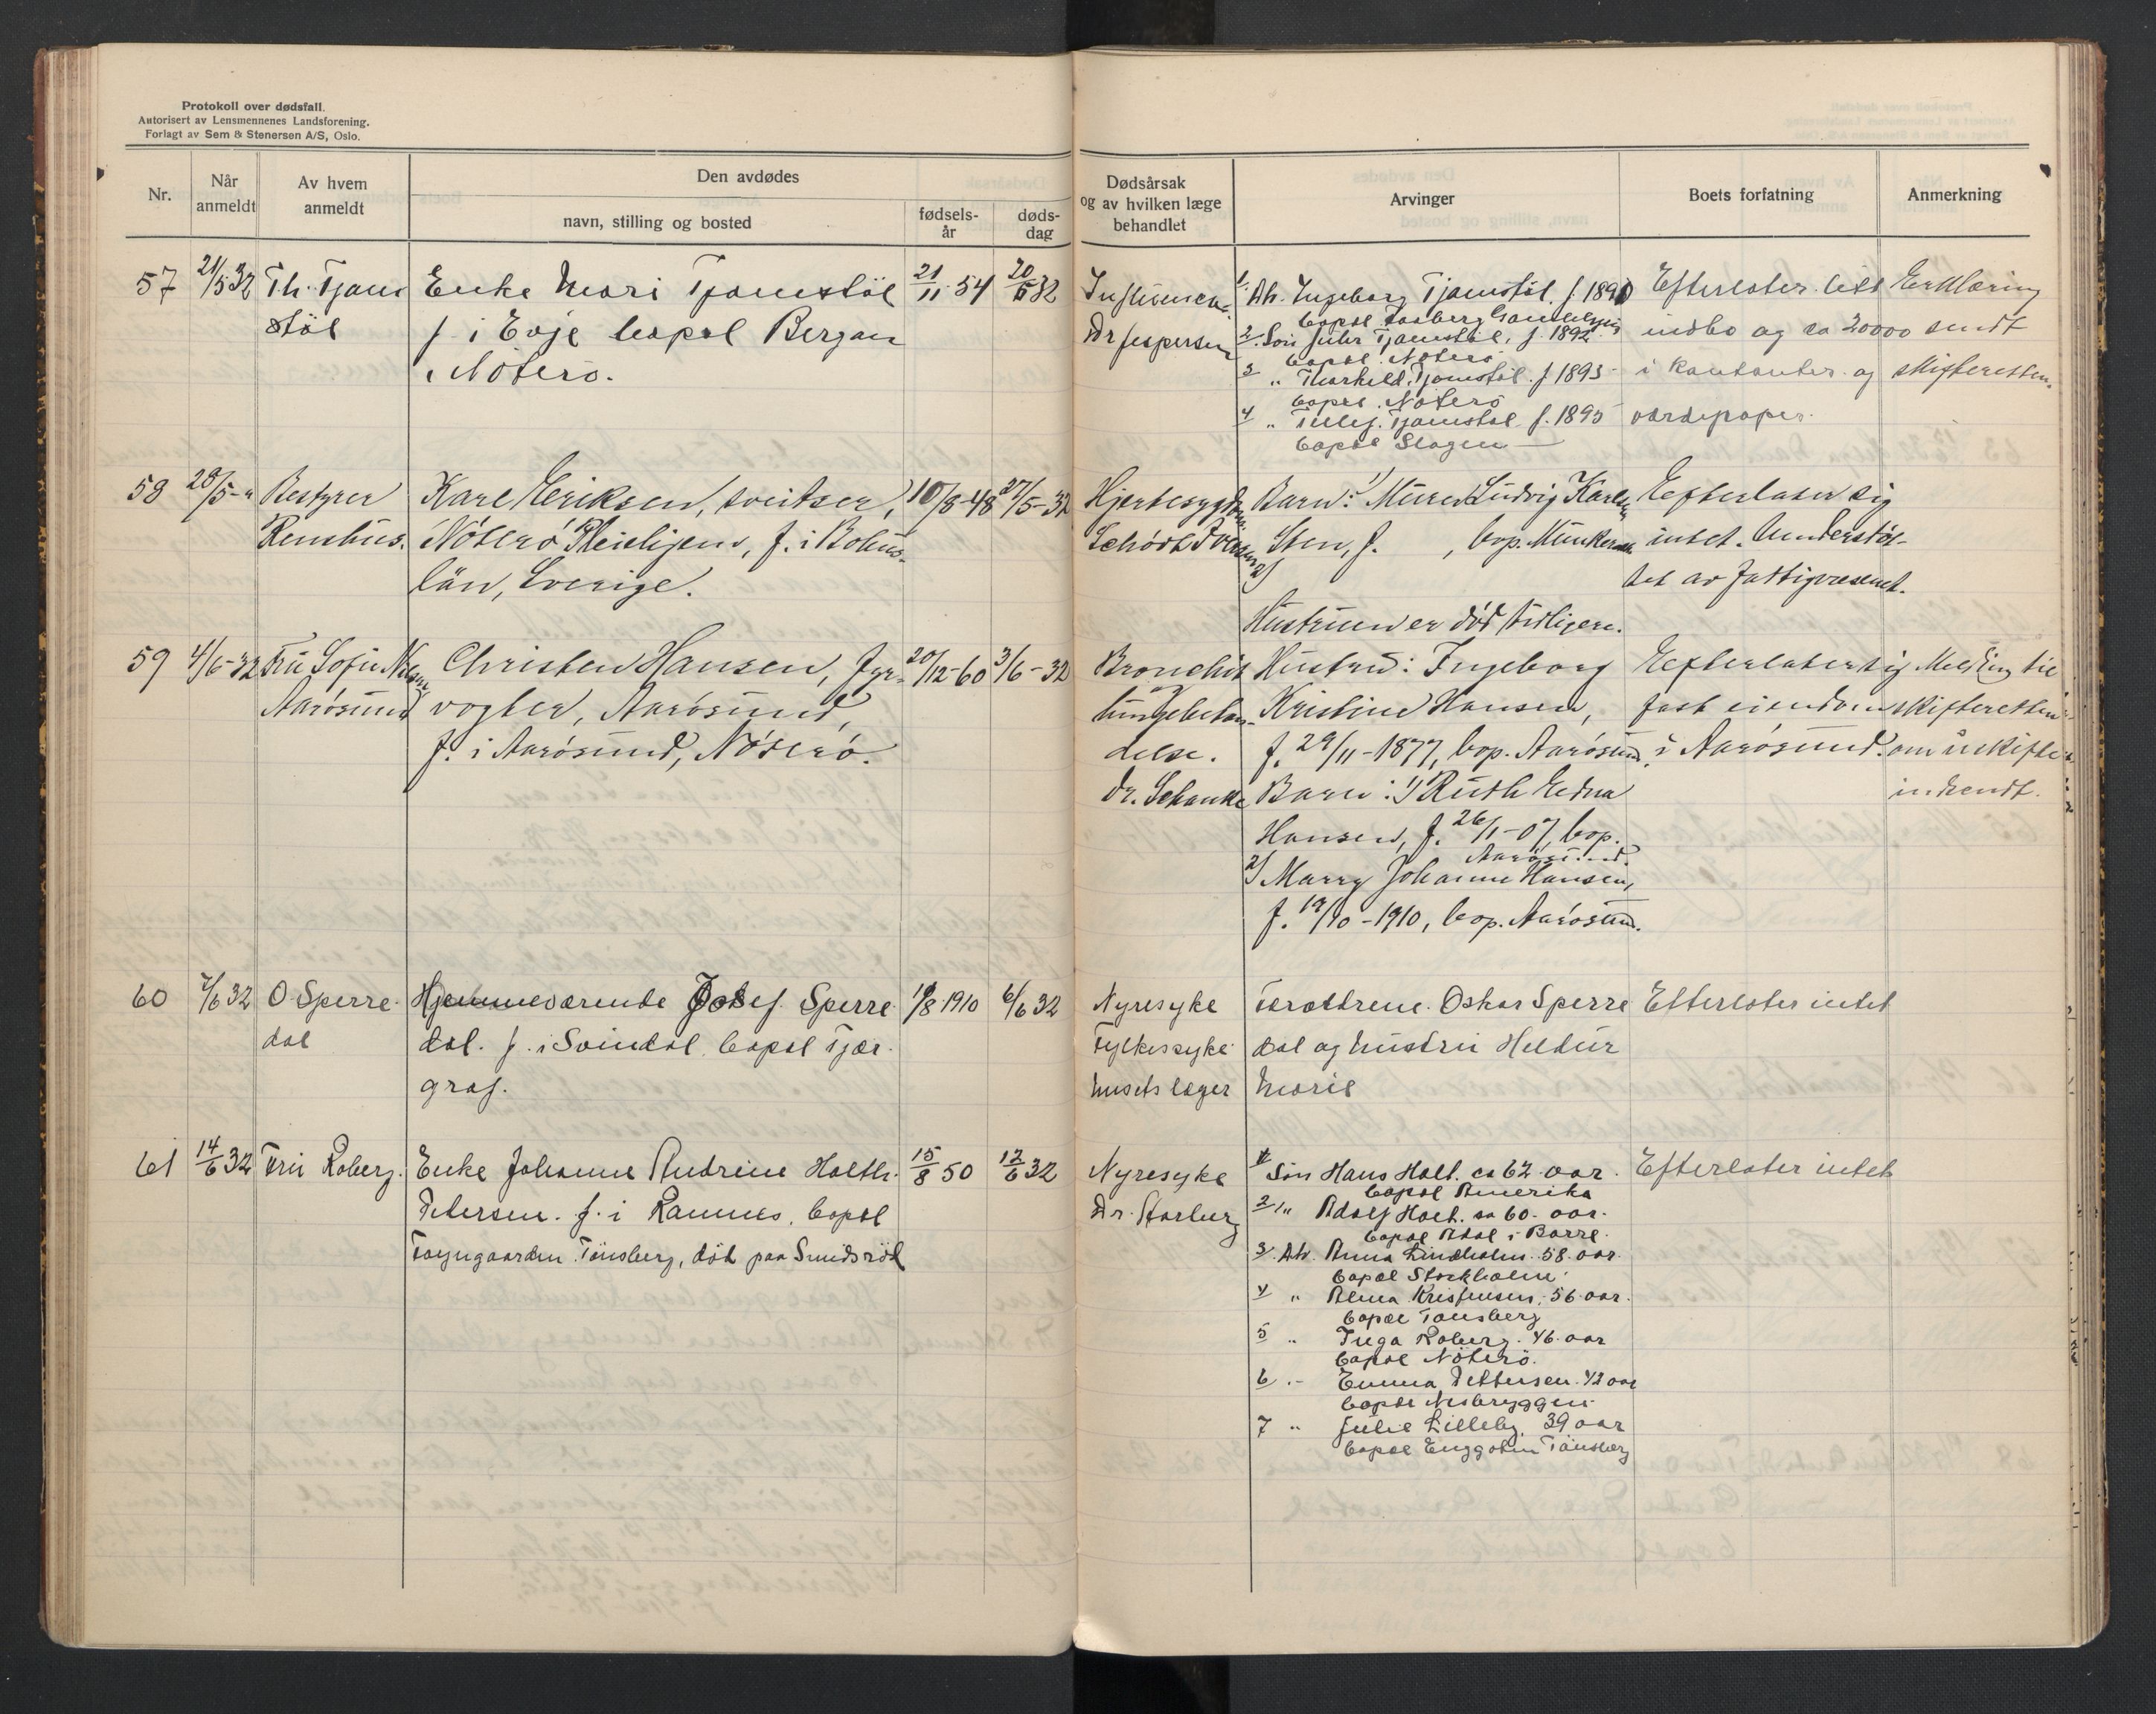 Protokoll over dødsfall.
Autorisert av Lensmennenes Landsforening.
Forlagt av Sem & Stenersen A/S, Oslo.
Nr.
Når anmeldt
Av hvem anmeldt
Den avdødes
navn, stilling og bosted
fødsels-år
døds-dag
Dødsårsak og av hvilken læge behandlet
Arvinger
Boets forfatning
Anmerkning
57
21/5 32
Th. Tjam
støl
Enke Mari Tjamstøl
f. i Evje bopæl Bergan
i Nøterø.
21/11 54
20/5 32
Influenca.
Dr Jespersen
1. Dt. Ingeborg Tjamstøl. f. 1890
bopæl
2. Søn Tjamstøl. f. 1892
bopæl. Nøterø
3 " Thorhild. Tjamstøl. f 1893
bopæl. Nøterø
4 " Tellef. Tjamstøl f. 1895
bopæl Slagen
Efterlater litt
indbo og ca 20000
i kontanter og
værdipapir.
Erklæring
sendt
skifteretten.
58
28/5 - "
Bestyrer
Renshus.
Karl Eriksen, sveitser,
Nøterø Pleiehjem, f. i Bohus-
län, Sverige.
10/8-48
27/5-32
Hjertesygdom.
Barn: 1/ Murer Ludvig Karlsen
Sten, f. , bop. Munkerek
2/
Hustruen er død tidligere.
Eefterlater sig
intet. Understøt-
tet av fattigvæsenet.
59
4/6-32
Fru Sofie
Aarøsund
Christen Hansen, fyr-
vogter, Aarøsund,
f. i Aarøsund, Nøterø.
20/12-60
3/6-32
Bronchit
og
lungebetæn-
delse.
Dr. Schanke
Hustru: Ingeborg
Kristine Hansen,
f. 29/11-1877, bop. Aarøsund.
Barn: 1/ Ruth Edna
Hansen, f. 26/1-07, bop.
Aarøsund.
2/ Marry Johanne Hansen,
f. 19/10-1910, bop. Aarøsund.
Eefterlater sig
fast eiendom
i Aarøsund.
Melding til
skifteretten
om uskifte
indsendt.
60
7/6 32
O. Sperre-
dal
Hjemmeværende Josef. Sperre
dal. f. i Svindal. bopæl Tjær-
graf.
19/8 1910
6/6 32
Nyresyke
Fylkessyke
husets læger
Forældrene. Oskar Sperre
dal og hustru Heldur
Marie
Efterlater intet
61
14/6 32
Fru Roberg.
Enke Johanne Andrine Holth-
Petersen. f. i Ramnes. bopæl
Tønsberg, død paa Smidsrød
15/8 50
12/6 32
Nyresyke
Dr.
1 Søn Hans Holt. ca 62 aar.
bopæl Amerika
2 " Adolf Holt. ca 60. aar.
bopæl Adal i Borre.
3. Dt. Anna Lindholm. 58. aar.
bopæl Stockholm.
4 " Alma Kristensen. 56 aar.
bopæl Tønsberg
5 " Inga Roberg. 46. aar
bopæl Nøterø.
6 " Emma Pettersen. 42 aar
bopæl Nesbryggen
7 " Julie Lilleby. 39 aar
bopæl Tønsberg
Efterlater intet